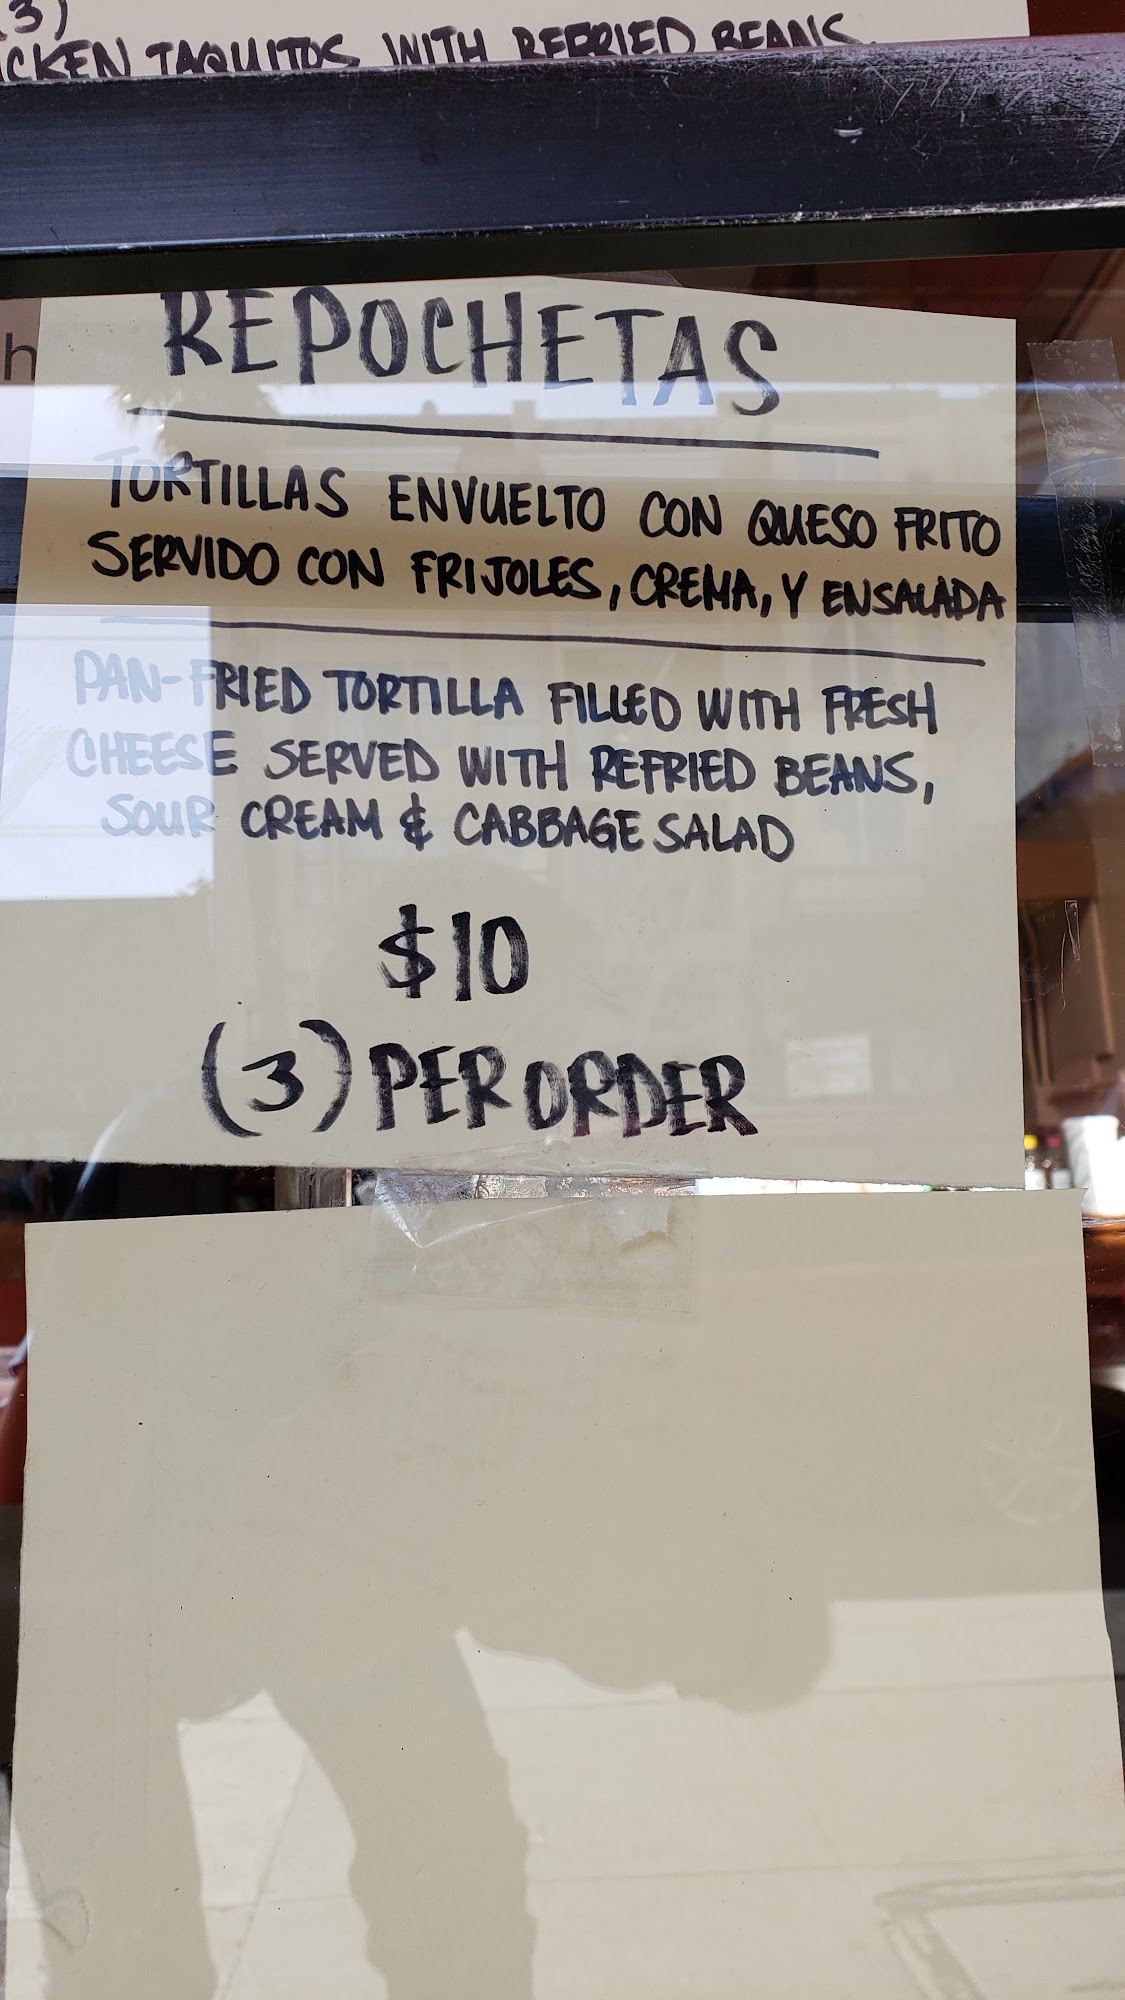 (3)
CKEN TAQUITOS WITH REFRIED BEANS
h
REPOCHETAS
TORTILLAS ENVUELTO CON QUESO FRITO
SERVIDO CON FRIJOLES, CREMA, Y ENSALADA
PAN-FRIED TORTILLA FILLED WITH FRESH
CHEESE SERVED WITH REFRIED BEANS,
SOUR CREAM & CABBAGE SALAD
$10
(3) PER ORDER